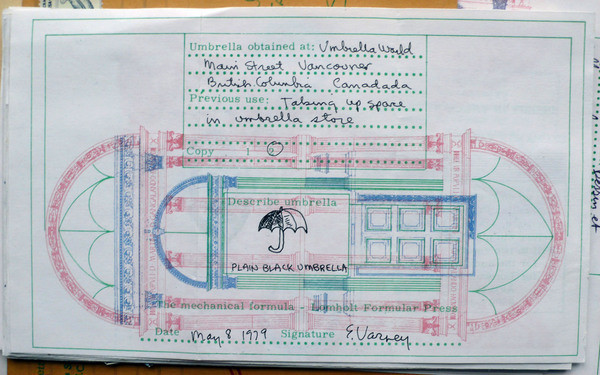 Umbrella obtained at: Umbrella World
Main Street Vancouver
British Columbia Canadada
Previous use: Taking up space
in umbrella store
Copy 1 2
Describe umbrella
PLAIN BLACK UMBRELLA
The mechanical formula Lomholt Formular Press
Date May 8 1979 Signature E. Varney